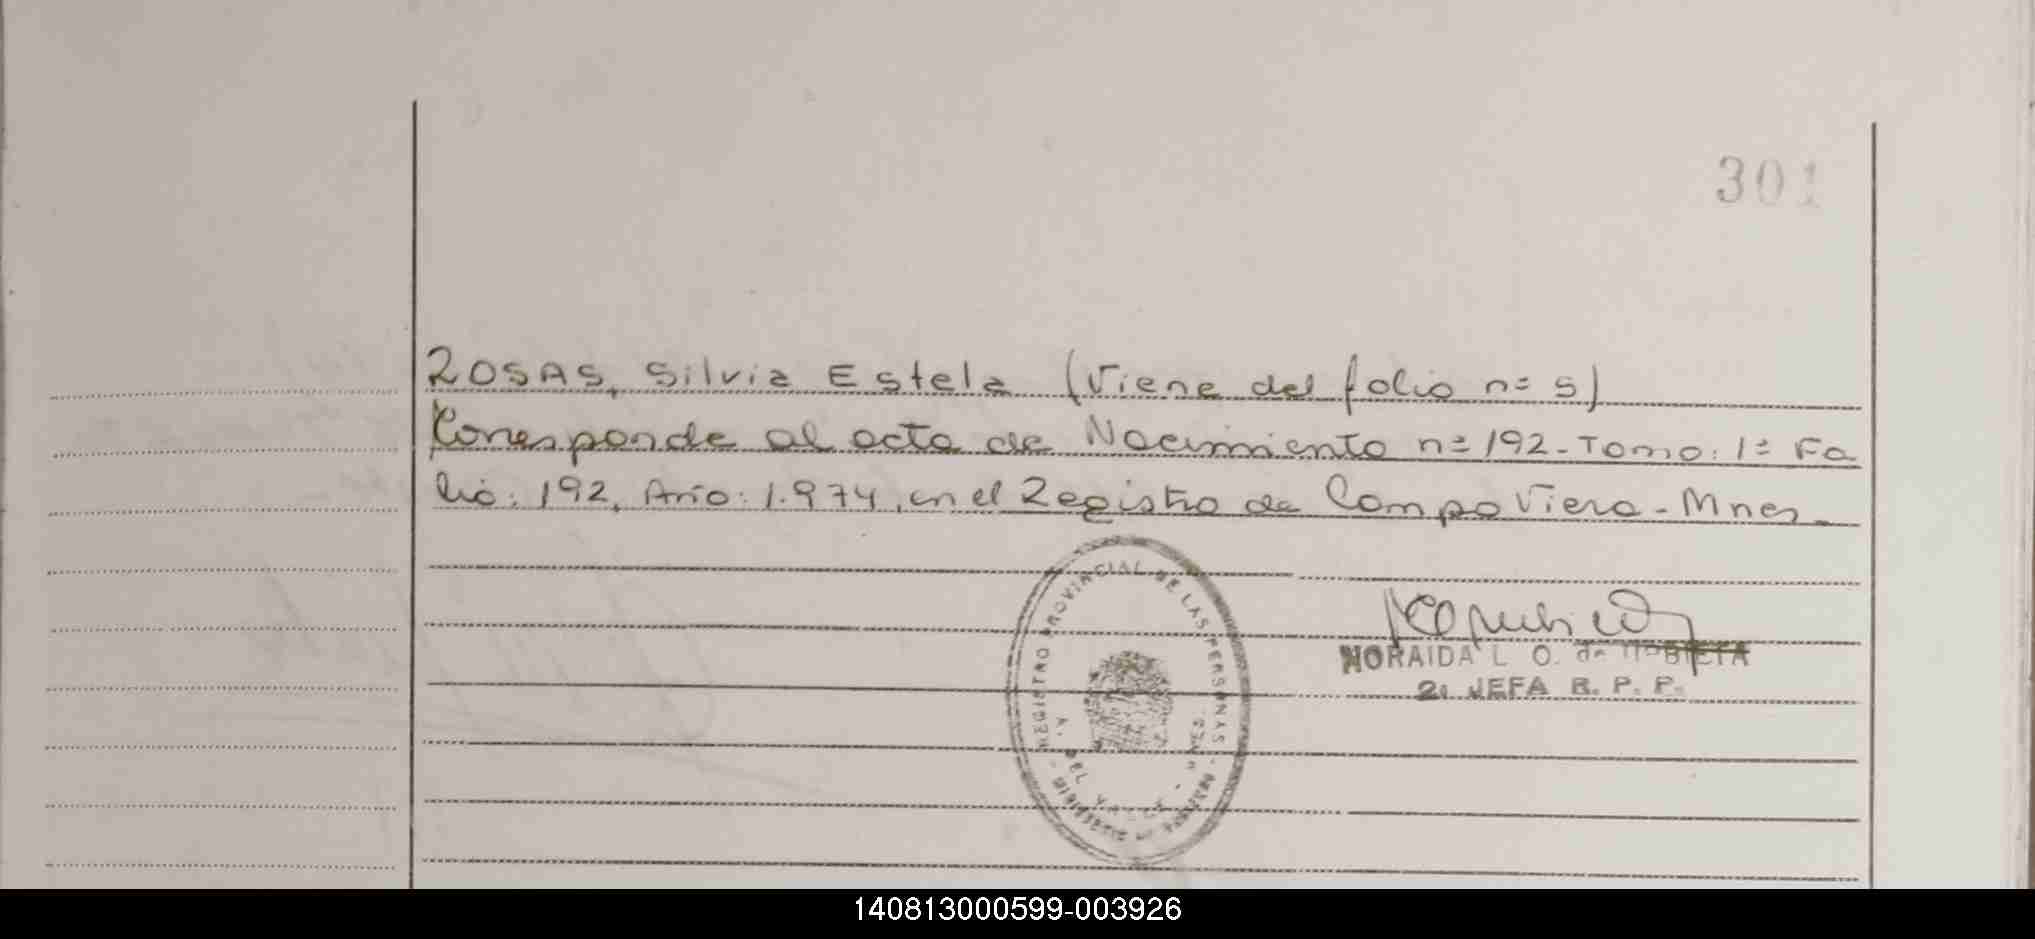 301
ROSAS, Silvia Estela (Viene del folio nº 5)
Corresponde al acta de Nacimiento nº 192 - Tomo: 1º Fo
lio: 192, Año: 1.974, en el Registro de Campo Viera - Mnes.
REGISTRO PROVINCIAL DE LAS PERSONAS
NORAIDA L. O. de
2. JEFA R. P. P.
140813000599-003926